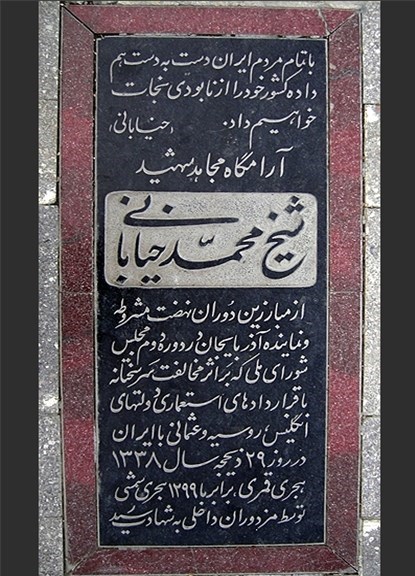 با تمام مردم ایران دست به دست هم
داده کشور خود را از نابودی نجات
خواهیم داد. (خیابانی)
آرامگاه مجاهد شهید
شیخ محمد خیابانی
از مبارزین دوران نهضت مشروطه
و نماینده آذربایجان در دوره دوم مجلس
شورای ملی که بر اثر مخالفت سرسختانه
با قراردادهای استعماری دولتهای
انگلیس، روسیه و عثمانی با ایران
در روز ۲۹ ذیحجه سال ۱۳۳۸
هجری قمری برابر با ۱۲۹۹ هجری شمسی
توسط مزدوران داخلی به شهادت رسید